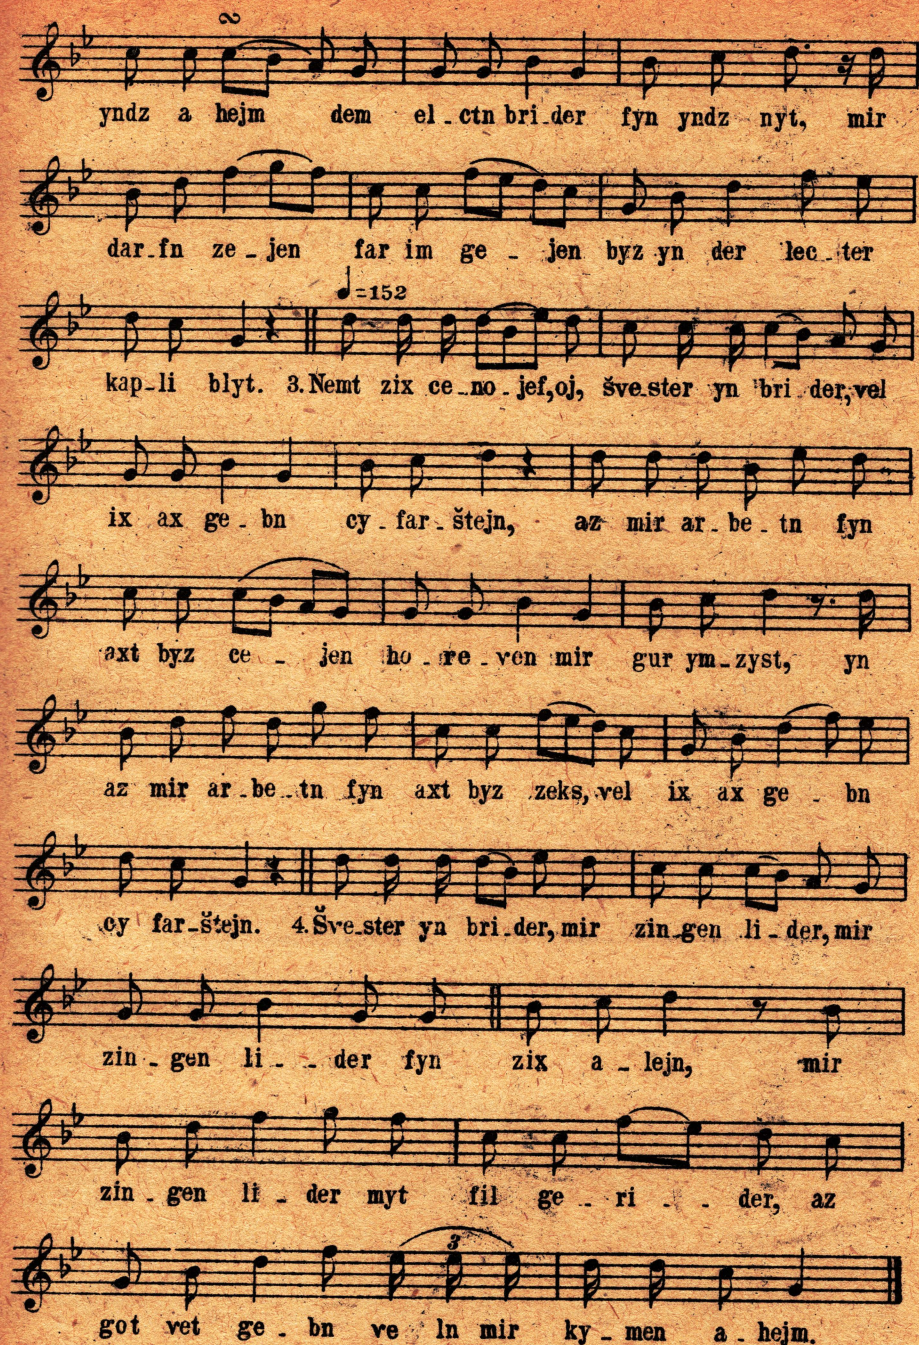 yndz a hejm dem el-ctn bri-der fyn yndz nyt, mir
dar-fn ze-jen far im ge-jen byz yn der lec-ter
♩=152
kap-li blyt. 3. Nemt zix ce-no-jef, oj, šve-ster yn bri-der, vel
ix ax ge-bn cy-far-štejn, az mir ar-be-tn fyn
axt byz ce-jen ho-re-ven mir gur ym-zyst, yn
az mir ar-be-tn fyn axt byz zeks, vel ix ax ge-bn
cy far-štejn. 4. Šve-ster yn bri-der, mir zin-gen li-der, mir
zin-gen li-der fyn zix a-lejn, mir
zin-gen li-der myt fil ge-ri-der, az
3
got vet ge-bn ve ln mir ky-men a-hejm.